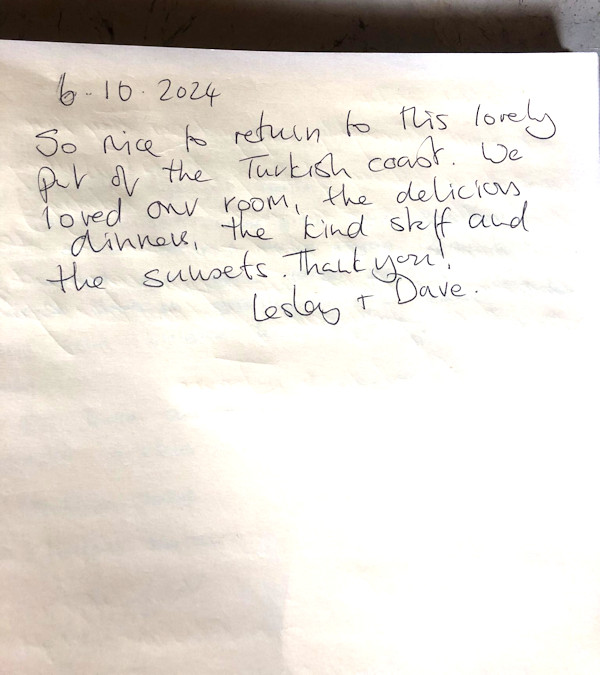 6-10.2024
So nice to return to this lovely
part of the Turkish coast. We
loved our room, the delicious
dinners, the kind staff and
the sunsets. Thank you!
Lesley + Dave.